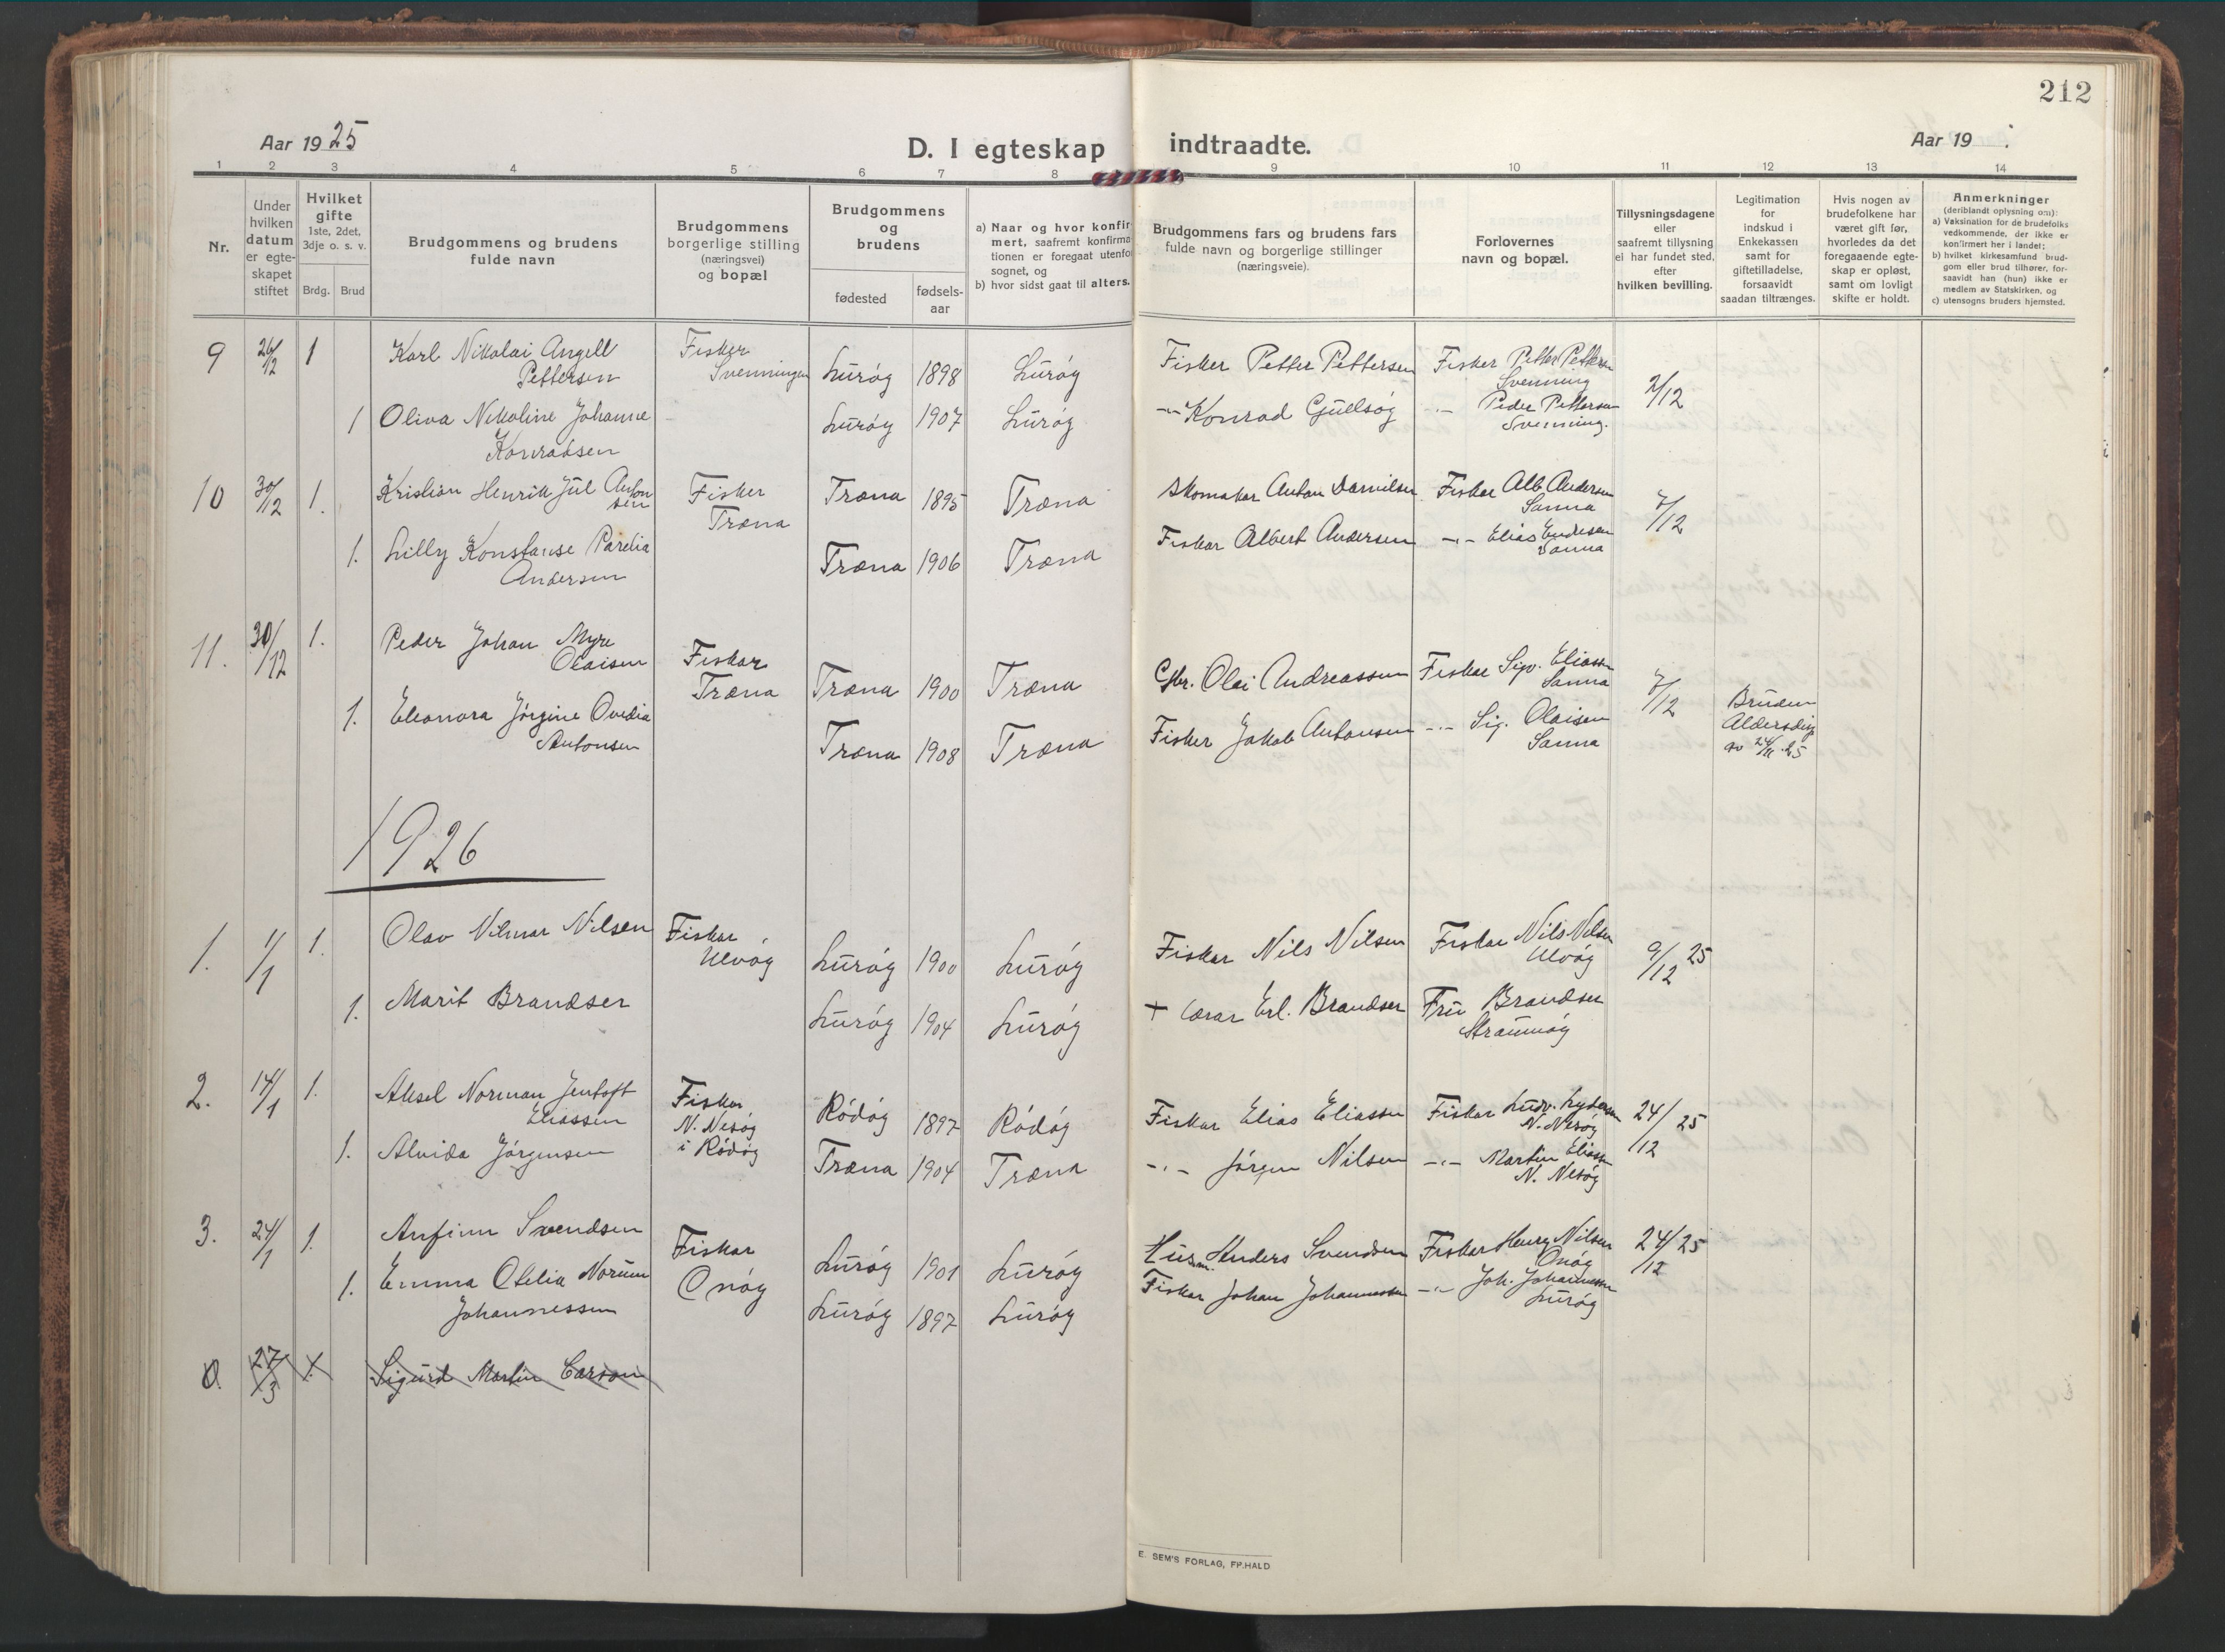 212
Aar 1925
D. I egteskap indtraadte.
Aar 19
1 2 3 4 5 6 7 8 9 10 11 12 13 14
Nr.
Under
hvilken
datum
er egte-
skapet
stiftet
Hvilket
gifte
1ste, 2det,
3dje o. s. v.
Brdg. Brud
Brudgommens og brudens
fulde navn
Brudgommens
borgerlige stilling
(næringsvei)
og bopæl
Brudgommens
og
brudens
fødested
fødsels-
aar
a) Naar og hvor konfir
mert, saafremt konfirma
tionen er foregaat utenfo
sognet, og
b) hvor sidst gaat til alters.
Brudgommens fars og brudens fars
fulde navn og borgerlige stillinger
(næringsveie).
Forlovernes
navn og bopæl.
Tillysningsdagene
eller
saafremt tillysning
ei har fundet sted,
efter
hvilken bevilling.
Legitimation
for
indskud i
Enkekassen
samt for
giftetilladelse,
forsaavidt
saadan tiltrænges.
Hvis nogen av
brudefolkene har
været gift før,
hvorledes da det
foregaaende egte-
skap er opløst,
samt om lovligt
skifte er holdt.
Anmerkninger
(deriblandt oplysning om):
a) Vaksination for de brudefolks
vedkommende, der ikke er
konfirmert her i landet;
b) hvilket kirkesamfund brud-
gom eller brud tilhører, for-
saavidt han (hun) ikke er
medlem av Statskirken, og
c) utensogns bruders hjemsted.
9 26/12 1 Karl Nikolai Angell
Pettersen
Fisker
Svenningen
Lurøy 1898 Lurøy
Fisker Petter Pettersen
Fisker Petter Pettersen
Svenning
2/12
1 Oliva Nikoline Johanne
Konradsen
Lurøy 1907 Lurøy
-"- Konrad Gullsøy
-"- Peder Pettersen
Svenning.
10 30/12 1. Kristian Henrik Jul Anton
sen
Fisker
Træna
Træna 1895 Træna
Skomaker Anton Danielsen
Fisker Alb. Andersen
Sanna
7/12
1. Lilly Konstanse Parelia
Andersen
Træna 1906 Træna
Fisker Albert Andersen
-"- Elias Endresen
Sanna
11. 30/12 1. Peder Johan Myre
Olaisen
Fisker
Træna
Træna 1900 Træna
Gbr. Olai Andreassen
Fisker Sigv. Eliassen
Sanna
7/12
1. Eleonora Jørgine Ovedia
Antonsen
Træna 1908 Træna
Fisker Jakob Antonsen
-"- Sig. Olaisen
Sanna
Bruden
Aldersdisp
av 24/11 25
1926
1. 1/1 1. Olav Vilmar Nilsen
Fisker
Ulvøy
Lurøy 1900 Lurøy
Fisker Nils Nilsen
Fisker Nils Nilsen
Ulvøy
9/12 25
1. Marit Brandser
Lurøy 1904 Lurøy
+ Lærer Erl. Brandser
Fru Brandser
Straumøy
2. 14/1 1. Aksel Norman Jentoft
Eliassen
Fisker
N. Nesøy
i Rødøy
Rødøy 1897 Rødøy
Fisker Elias Eliassen
Fisker Ludv. Lydersen
N. Nesøy
24/12 25
1. Alvida Jørgensen
Træna 1904 Træna
-"- Jørgen Nilsen
-"- Martin Eliassen
N. Nesøy
3. 24/1 1. Anfinn Svendsen
Fisker
Onøy
Lurøy 1901 Lurøy
Husm. Anders Svendsen
Fisker Henry Nilsen
Onøy
24/12 25
1. Emma Otelia Norum
Johannessen
Lurøy 1897 Lurøy
Fisker Johan Johannessen
-"- Joh. Johannessen
Lurøy
0. 27/3 1. Sigurd Martin Carson
E. SEM'S FORLAG, FR.HALD